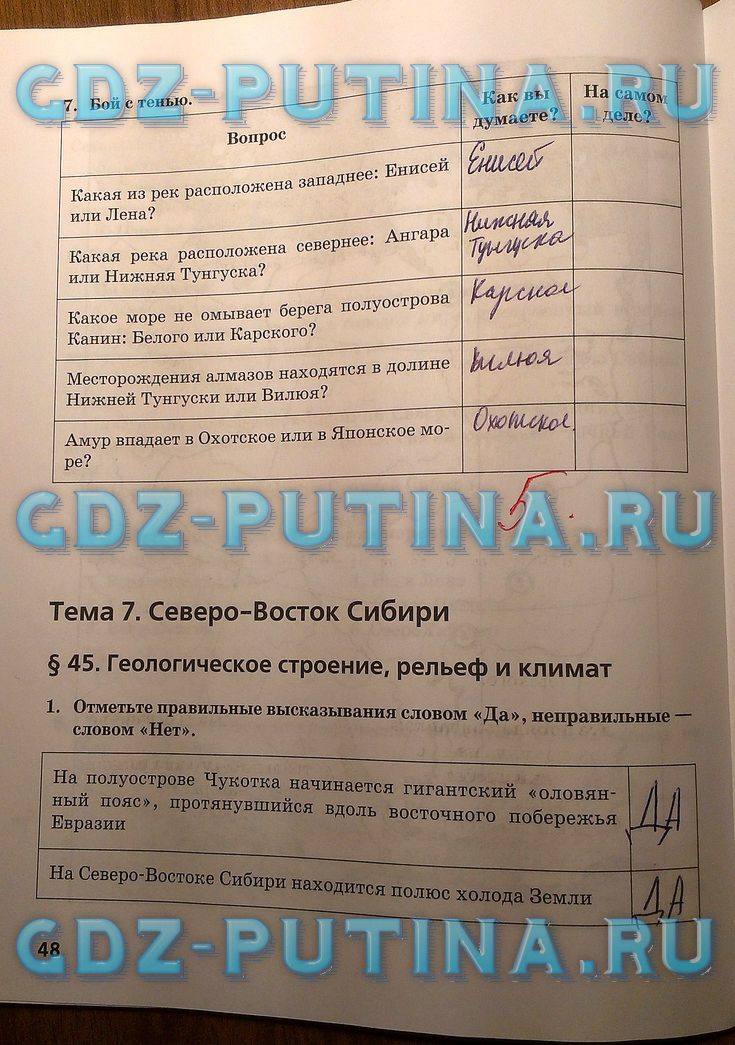 GDZ-PUTINA.RU
7. Бой с тенью.
Вопрос
Как вы
думаете?
На самом
деле?
Какая из рек расположена западнее: Енисей
или Лена?
Енисей
Какая река расположена севернее: Ангара
или Нижняя Тунгуска?
Нижняя
Тунгуска
Какое море не омывает берега полуострова
Канин: Белого или Карского?
Карское
Месторождения алмазов находятся в долине
Нижней Тунгуски или Вилюя?
Вилюя
Амур впадает в Охотское или в Японское мо-
ре?
Охотское.
5.
GDZ-PUTINA.RU
Тема 7. Северо-Восток Сибири
§ 45. Геологическое строение, рельеф и климат
1. Отметьте правильные высказывания словом «Да», неправильные —
словом «Нет».
На полуострове Чукотка начинается гигантский «оловян-
ный пояс», протянувшийся вдоль восточного побережья
Евразии
ДА
На Северо-Востоке Сибири находится полюс холода Земли
ДА
GDZ-PUTINA.RU
48